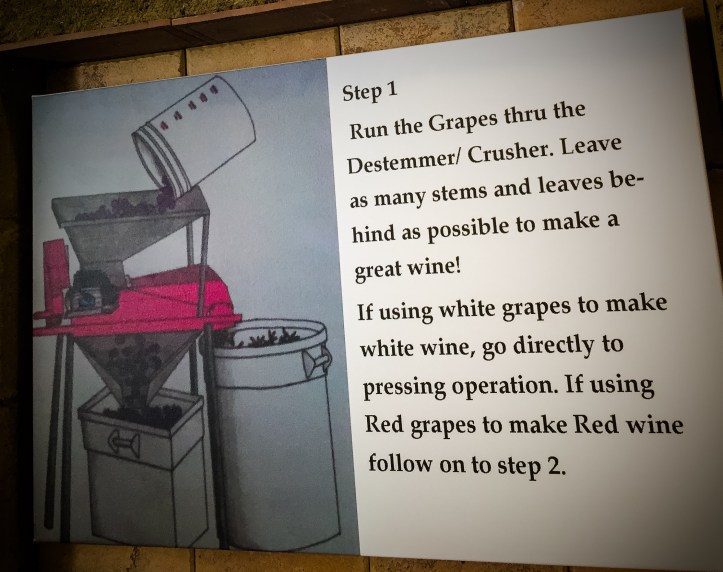 Step 1
Run the Grapes thru the
Destemmer/ Crusher. Leave
as many stems and leaves be-
hind as possible to make a
great wine!
If using white grapes to make
white wine, go directly to
pressing operation. If using
Red grapes to make Red wine
follow on to step 2.